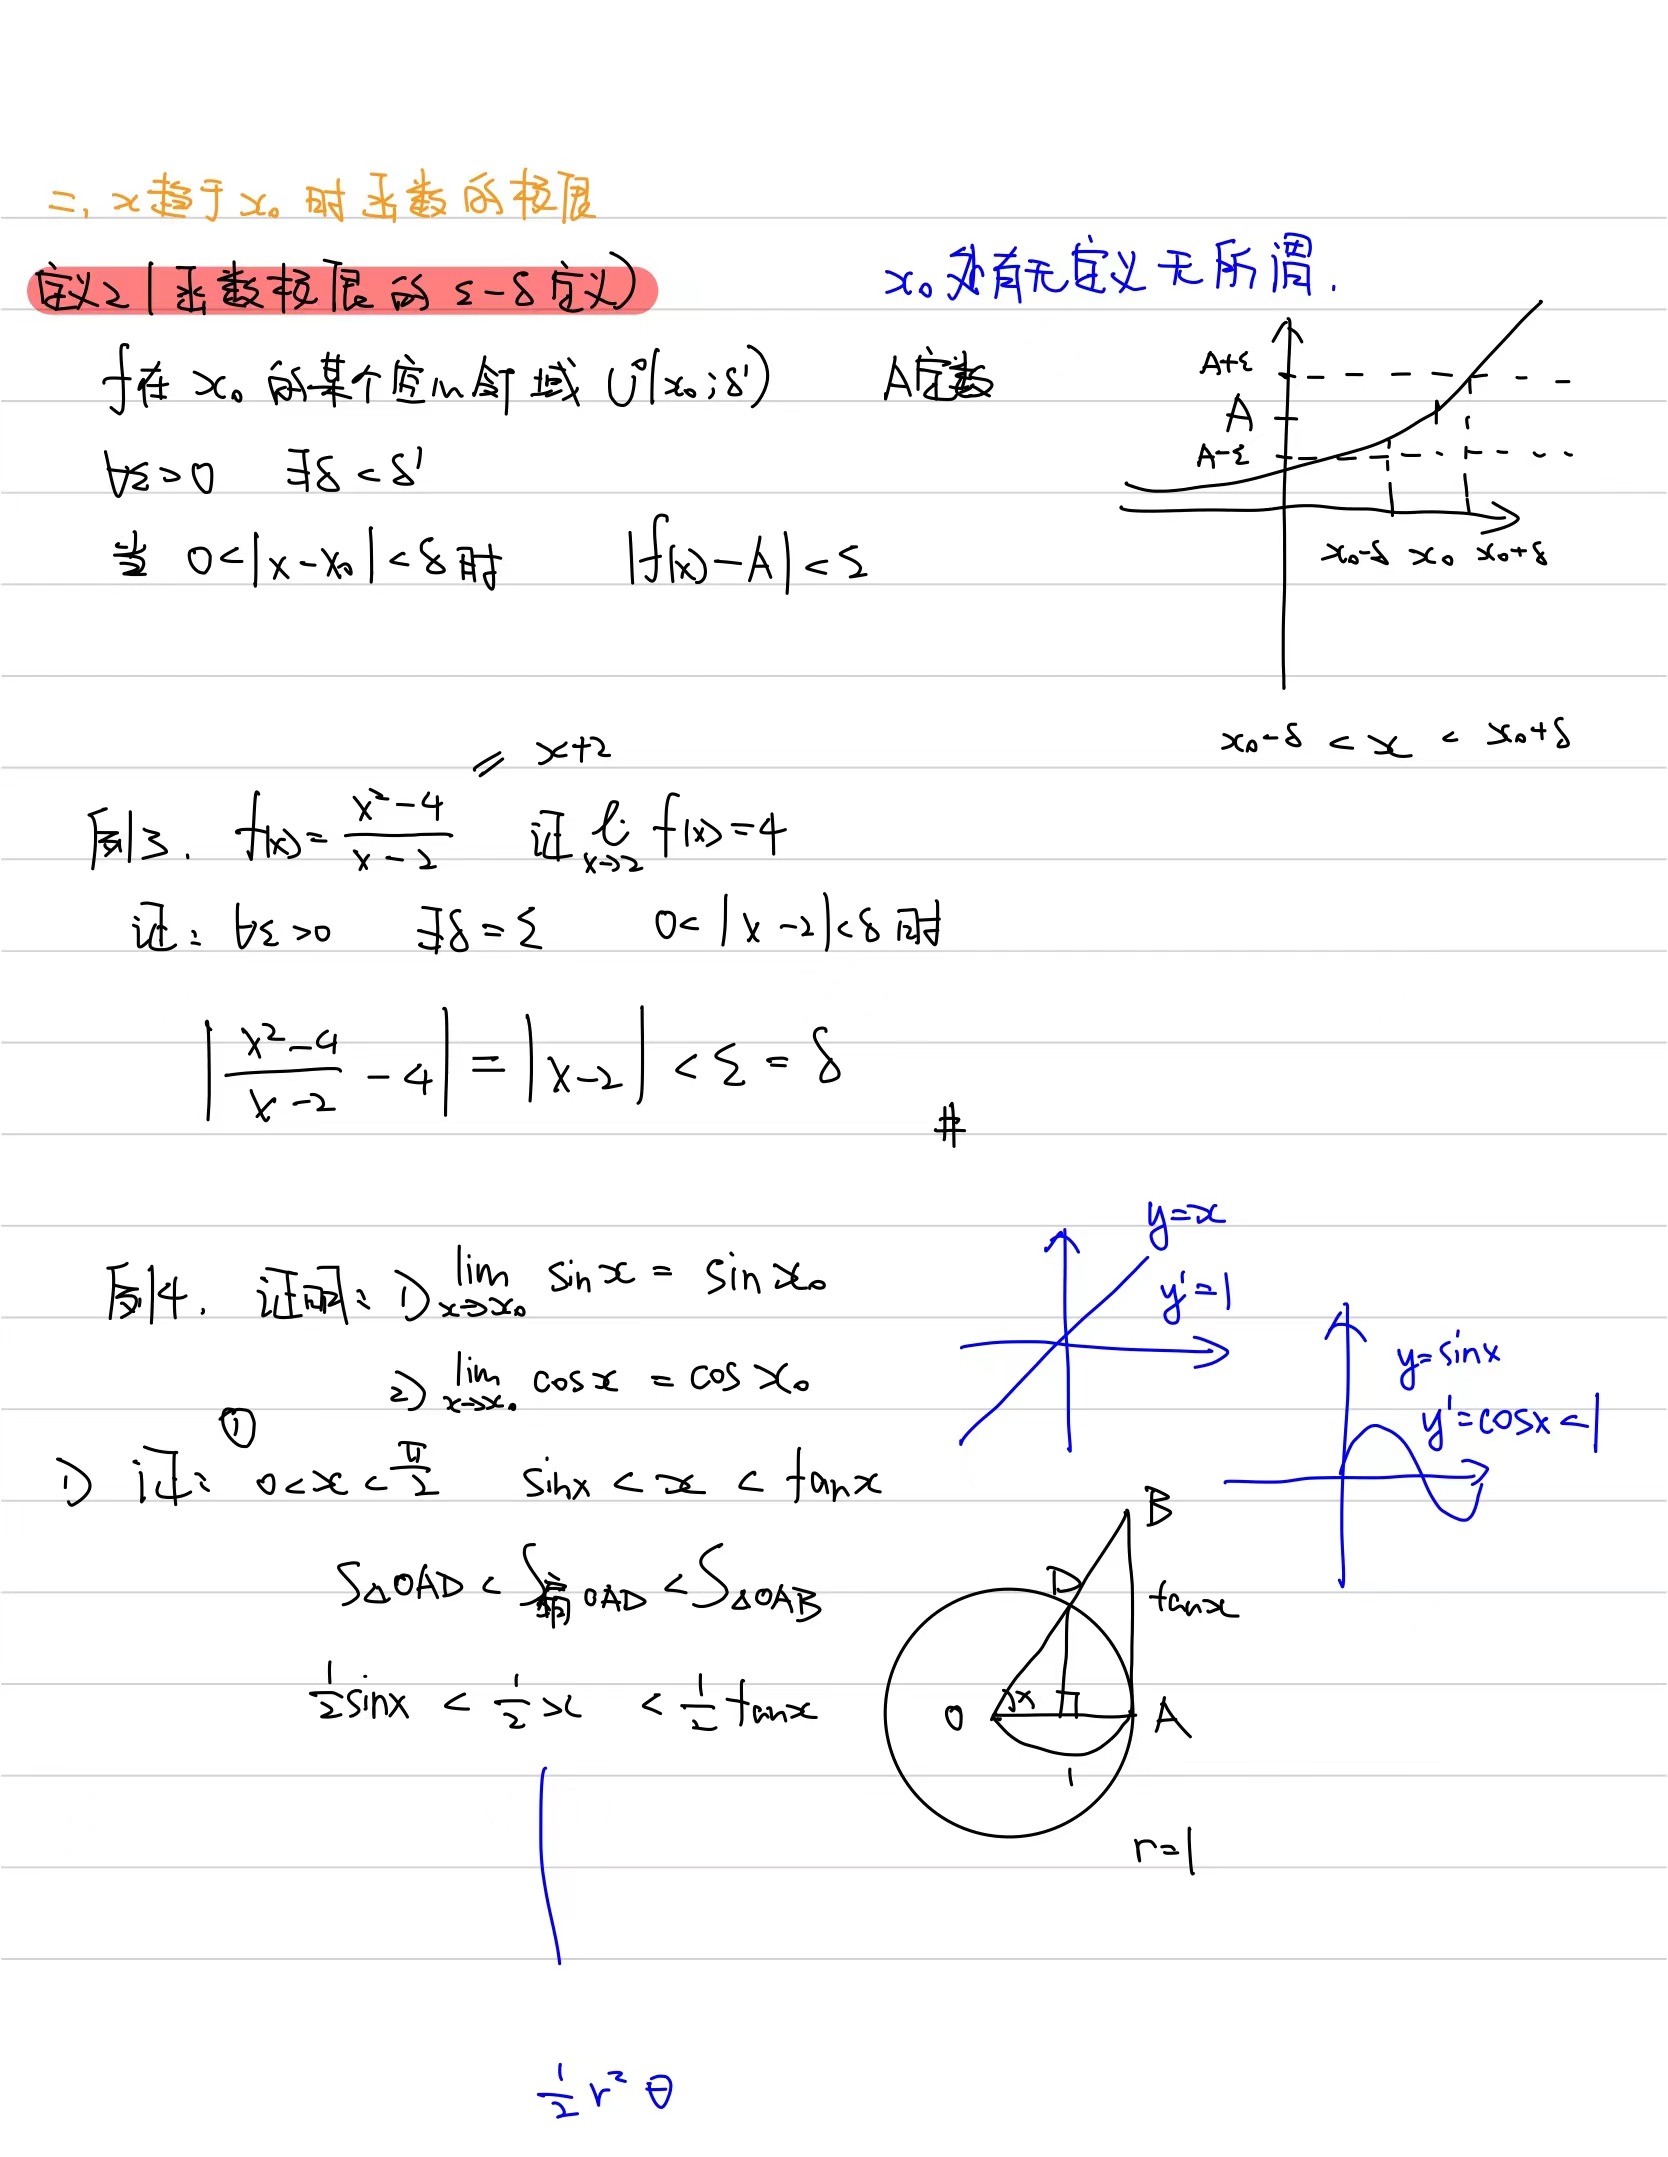 二、x趋于x₀时函数的极限
定义2(函数极限的ε-δ定义)
x₀处有无定义无所谓.
f在x₀的某个空心邻域U°(x₀;δ') A定数
∀ε>0 ∃δ<δ'
当 0<|x-x₀|<δ时 |f(x)-A|<ε
A+ε
A
A-ε
x₀-δ x₀ x₀+δ
x₀-δ < x < x₀+δ
= x+2
例3. f(x)=\frac{x²-4}{x-2} 证 li_{x→2} f(x)=4
证: ∀ε>0 ∃δ=ε 0<|x-2|<δ时
|\frac{x²-4}{x-2}-4|=|x-2|<ε=δ
#
例4. 证明: 1) lim_{x→x₀} sinx = sinx₀
2) lim_{x→x₀} cosx = cosx₀
y=x
y'=1
y=sinx
y'=cosx<1
①
1) 证: 0<x<\frac{π}{2} sinx < x < tanx
S△OAD < S扇OAD < S△OAB
\frac{1}{2}sinx < \frac{1}{2}x < \frac{1}{2}tanx
B
D
tanx
O x A
1
r=1
\frac{1}{2}r²θ